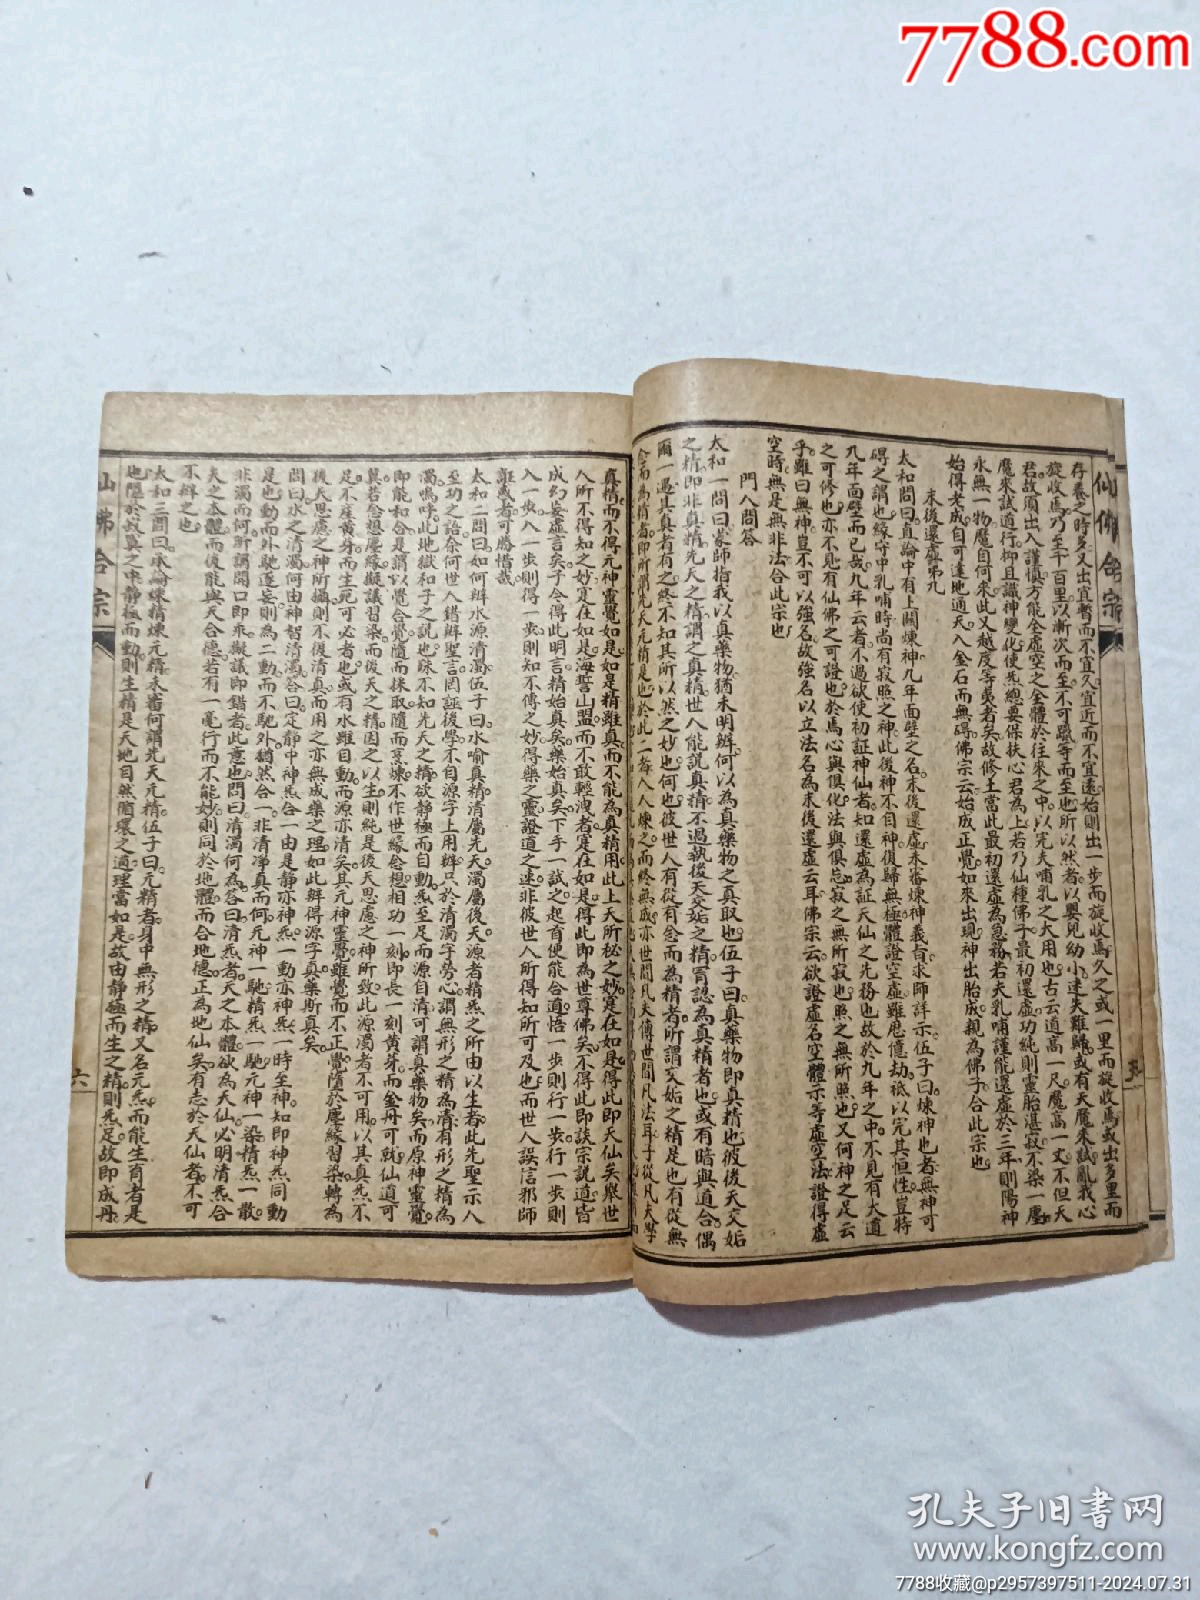 7788.com
仙佛合宗
存養之時多又出宜暫而不宜久宜近而不宜遠始則出一步而旋收焉久之或一里而旋收焉或出多里而
旋收焉乃至千百里以漸次而至不可躐等而至也所以然者以嬰兒幼小迷失難歸或有天魔來試亂我心
君故須出入謹慎方能全虛空之全體於往來之中以完夫哺乳之大用也古云道高一尺魔高一丈不但天
魔來試道行抑且識神變化使炁總要保扶心君為上若乃仙種佛子最初還虛功純則靈胎湛寂不染一塵
永無一物魔自何來此又越度等夷者矣故修士當此最初還虛為急務若夫乳哺謹能還虛於三年則陽神
始得老成自可達地通天入金石而無碍佛宗云始成正覺如來出現神出胎成親為佛子合此宗也
末後還虛第九
太和問曰直論中有上關煉神九年面壁之名末後還虛未審煉神義旨求師詳示伍子曰煉神也者無神可
碍之謂也緣守中乳哺時尚有寂照之神此後神不自神復歸無極體證空虛雖歷億劫祗以完其恒性豈特
九年面壁而已哉九年云者不過欲使初証神仙者知還虛為証天仙之先務也故於九年之中不見有大道
之可修也亦不見有仙佛之可證也於焉心與俱化法與俱忘寂之無所寂也照之無所照也又何神之足云
乎雖曰無神豈不可以強名故強名以立法名為末後還虛云耳佛宗云欲證虛名空體示等虛空法證得虛
空時無是無非法合此宗也
門人問答
太和一問曰蒙師指我以真藥物猶未明辨何以為真藥物之真取也伍子曰真藥物即真精也彼後天交姤
之精即非真精先天之精謂之真精世人能說真精不過執後天交姤之精冐認為真精者也或有暗與道合偶
爾一遇其真者有之終不知其所以然之妙也何也彼世人有從有念而為精者所謂交姤之精是也有從無
念而為精者即所謂先天元精是也於此二者人人煉之而終無成亦世間凡夫傳世間凡法耳子從凡夫學
真精而不得元神靈覺如是如是精雖真而不能為真精用此上天所秘之妙寔在如是得此即天仙矣舉世
人所不得知之妙寔在如是海誓山盟而不敢輕洩者寔在如是得此即為世尊佛矣不得此即談宗說道皆
成幻妄虛言矣子今得此明言精始真矣藥始真矣下手一試之起首便能合道悟一步則行一步行一步則
入一步入一步則得一步則知不傳之妙得藥之靈證道之速非彼世人所得知所可及也而世人誤信邪師
誑惑者可勝惜哉
太和二問曰如何辨水源清濁伍子曰水喻真精清屬先天濁屬後天源者精炁之所由以生者此先聖示人
至功之語奈何世人錯解聖言罔誣後學不自源字上用辨只於清濁字勞心謂無形之精為清有形之精為
濁嗚呼此地獄和子之說也昧不知先天之精欲靜極而自動炁至足而源自清可謂真藥物矣而原神靈覺
即能和合是謂以覺合覺隨而採取隨而烹煉不作世緣念想相功一刻即長一刻黃芽而金丹可就仙道可
冀若念想塵緣擬議習染而後天之精因之以生則純是後天思慮之神所致此源濁者不可用以其真炁不
足不產黃芽而生死可必者也或有水雖自動而源亦清矣其元神靈覺雖覺而不正覺墮於塵緣習染轉為
後天思慮之神所攝則不後清真而用之亦無成藥之理如此辨得源字真藥斯真矣
問曰水之清濁何由神智清濁答曰定靜中神炁合一由是靜亦神炁一動亦神炁一時至神知即神炁同動
是也動而外馳遂妄則為二動而不馳外猶然合一非清凈真而何元神一馳精炁一馳元神一染精炁一散
非濁而何所謂開口即乖擬議即錯者此意也問曰清濁何為答曰清炁者天之本體欲為天仙必明清炁合
天之本體而後能與天合德若有一毫行而不能妙則同於地體而合地德正為地仙矣有志於天仙者不可
不辯之也
太和三問曰承論煉精煉元精未審何謂先天元精伍子曰元精者身中無形之精又名元炁而能生育者是
也隱於寂寞之中靜極而動則生精是天地自然循環之道理當如是故由靜極而生之精則炁足故即成丹
仙佛合宗
六
孔夫子旧书网
www.kongfz.com
7788收藏@p2957397511-2024.07.31